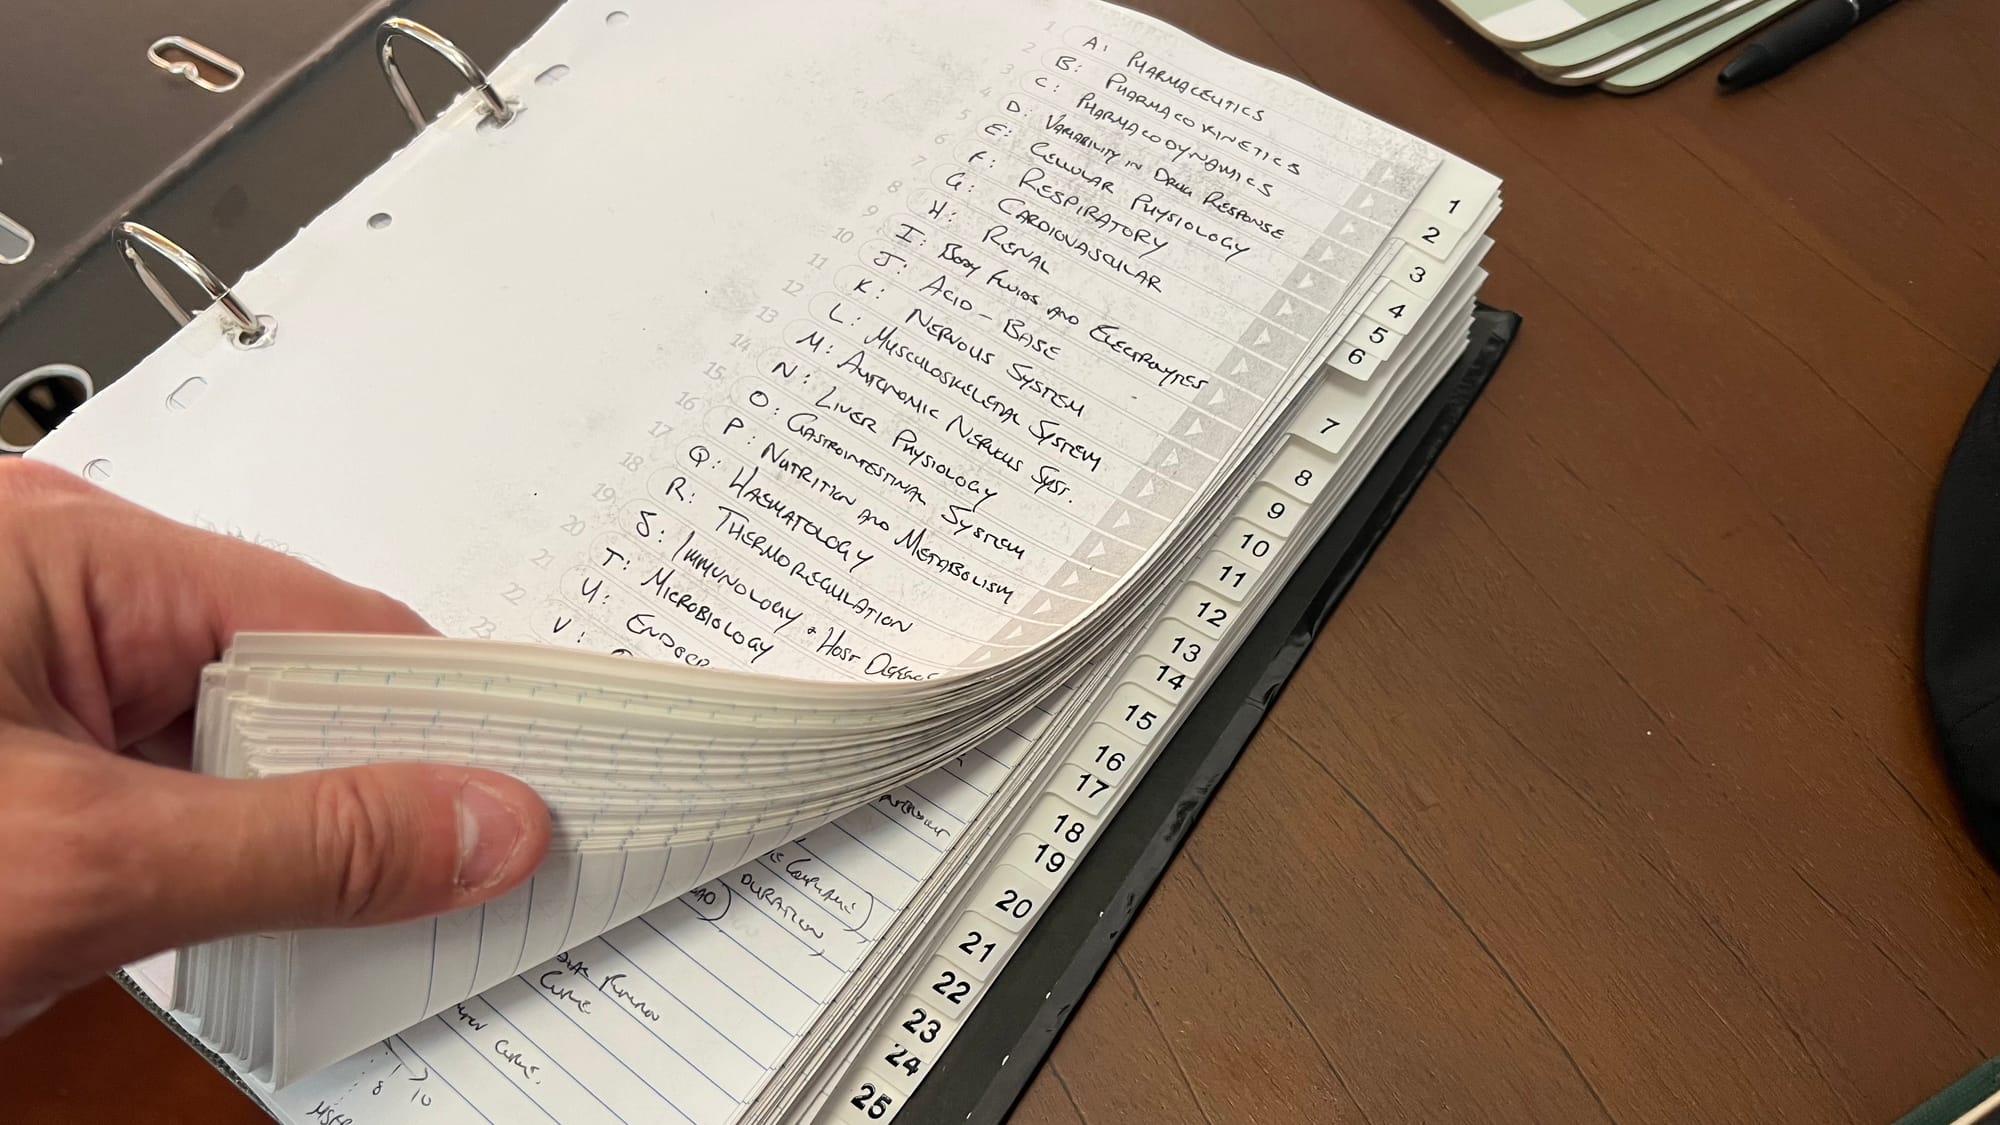 1 A: PHARMACEUTICS
2 B: PHARMACOKINETICS
3 C: PHARMACODYNAMICS
4 D: VARIABILITY IN DRUG RESPONSE
5 E: CELLULAR PHYSIOLOGY
6 F: RESPIRATORY
7 G: CARDIOVASCULAR
8 H: RENAL
9 I: BODY FLUIDS AND ELECTROLYTES
10 J: ACID-BASE
11 K: NERVOUS SYSTEM
12 L: MUSCULOSKELETAL SYSTEM
13 M: AUTONOMIC NERVOUS SYST.
14 N: LIVER PHYSIOLOGY
15 O: GASTROINTESTINAL SYSTEM
16 P: NUTRITION AND METABOLISM
17 Q: HAEMATOLOGY
18 R: THERMOREGULATION
19 S: IMMUNOLOGY + HOST DEFENCE
20 T: MICROBIOLOGY
21 U: ENDOCR
22 V:
23
1
2
3
4
5
6
7
8
9
10
11
12
13
14
15
16
17
18
19
20
21
22
23
24
25
COMPLIANCE)
DURATION,
CURVE
CURVE.
8 10